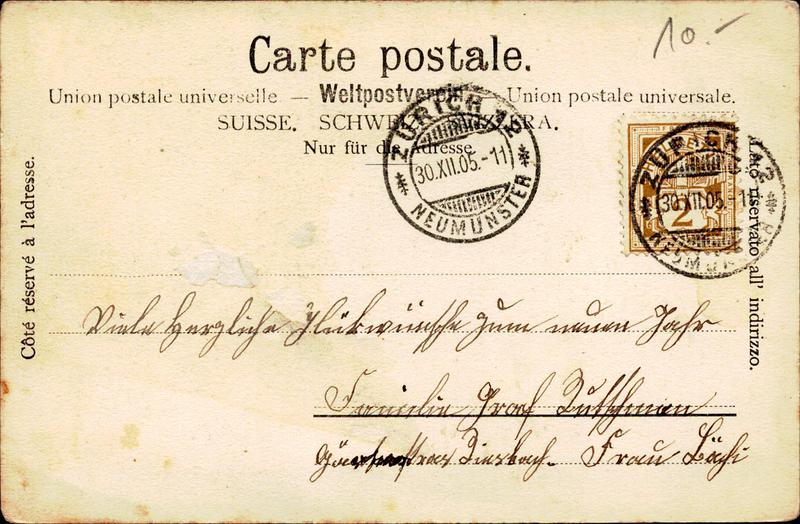 10.-
Carte postale.
Union postale universelle. — Weltpostverein — Union postale universale.
SUISSE. SCHWEIZ. SVIZZERA.
Nur für die Adresse.
ZÜRICH 12
30.XII.05.-11
NEUMÜNSTER
ZÜRICH 12
30.XII.05.-11
NEUMÜNSTER
2
Côté réservé à l'adresse.
Lato riservato all' indirizzo.
Viele Herzliche Glükwünsche zum neuen Jahr
Familie Graf
Frau Bächi